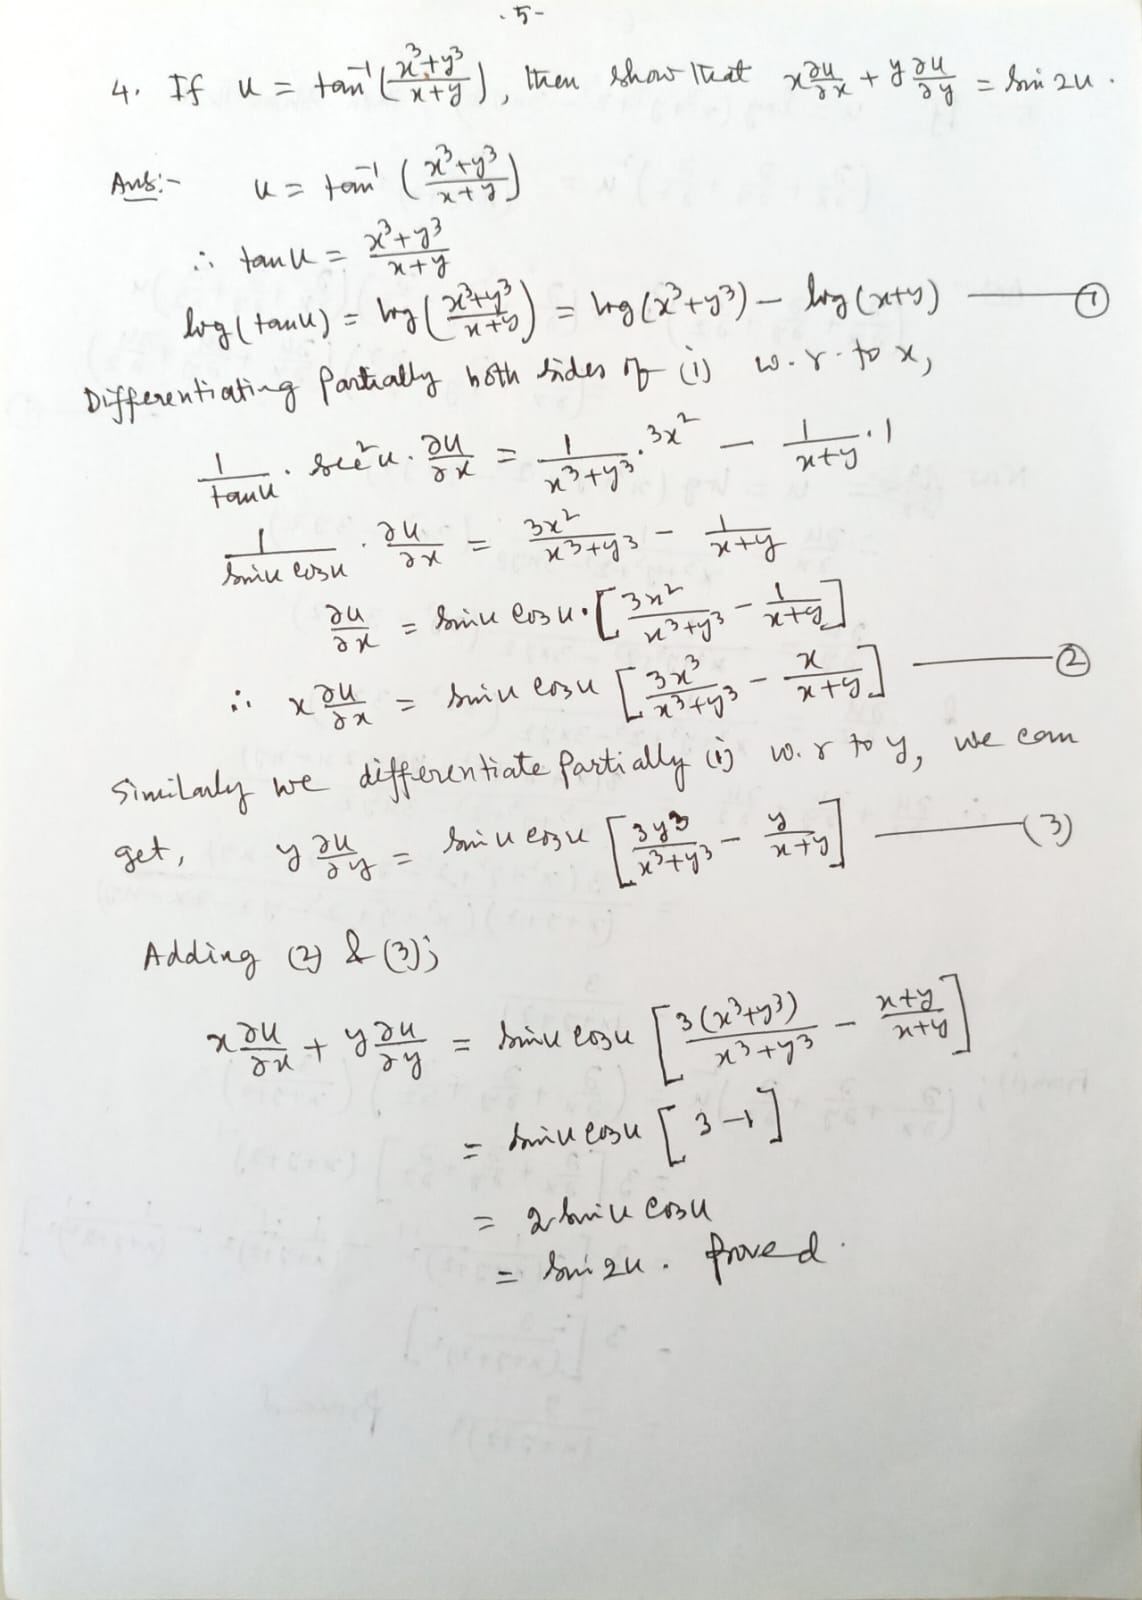 - 5 -
4. If u = tan⁻¹(x³+y³/x+y), then show that x ∂u/∂x + y ∂u/∂y = sin 2u.
Ans:- u = tan⁻¹ (x³+y³/x+y)
∴ tan u = x³+y³/x+y
log(tan u) = log(x³+y³/x+y) = log(x³+y³) – log(x+y) —— ①
Differentiating Partially both sides of (i) w.r. to x,
1/tan u · sec²u · ∂u/∂x = 1/x³+y³ · 3x² – 1/x+y · 1
1/sin u cos u · ∂u/∂x = 3x²/x³+y³ – 1/x+y
∂u/∂x = sin u cos u · [3x²/x³+y³ – 1/x+y]
∴ x ∂u/∂x = sin u cos u [3x³/x³+y³ – x/x+y] —— ②
Similarly we differentiate partially (i) w.r to y, we can
get, y ∂u/∂y = sin u cos u [3y³/x³+y³ – y/x+y] —— (3)
Adding (2) & (3);
x ∂u/∂x + y ∂u/∂y = sin u cos u [3(x³+y³)/x³+y³ – x+y/x+y]
= sin u cos u [3 – 1]
= 2 sin u cos u
= sin 2u. Proved.